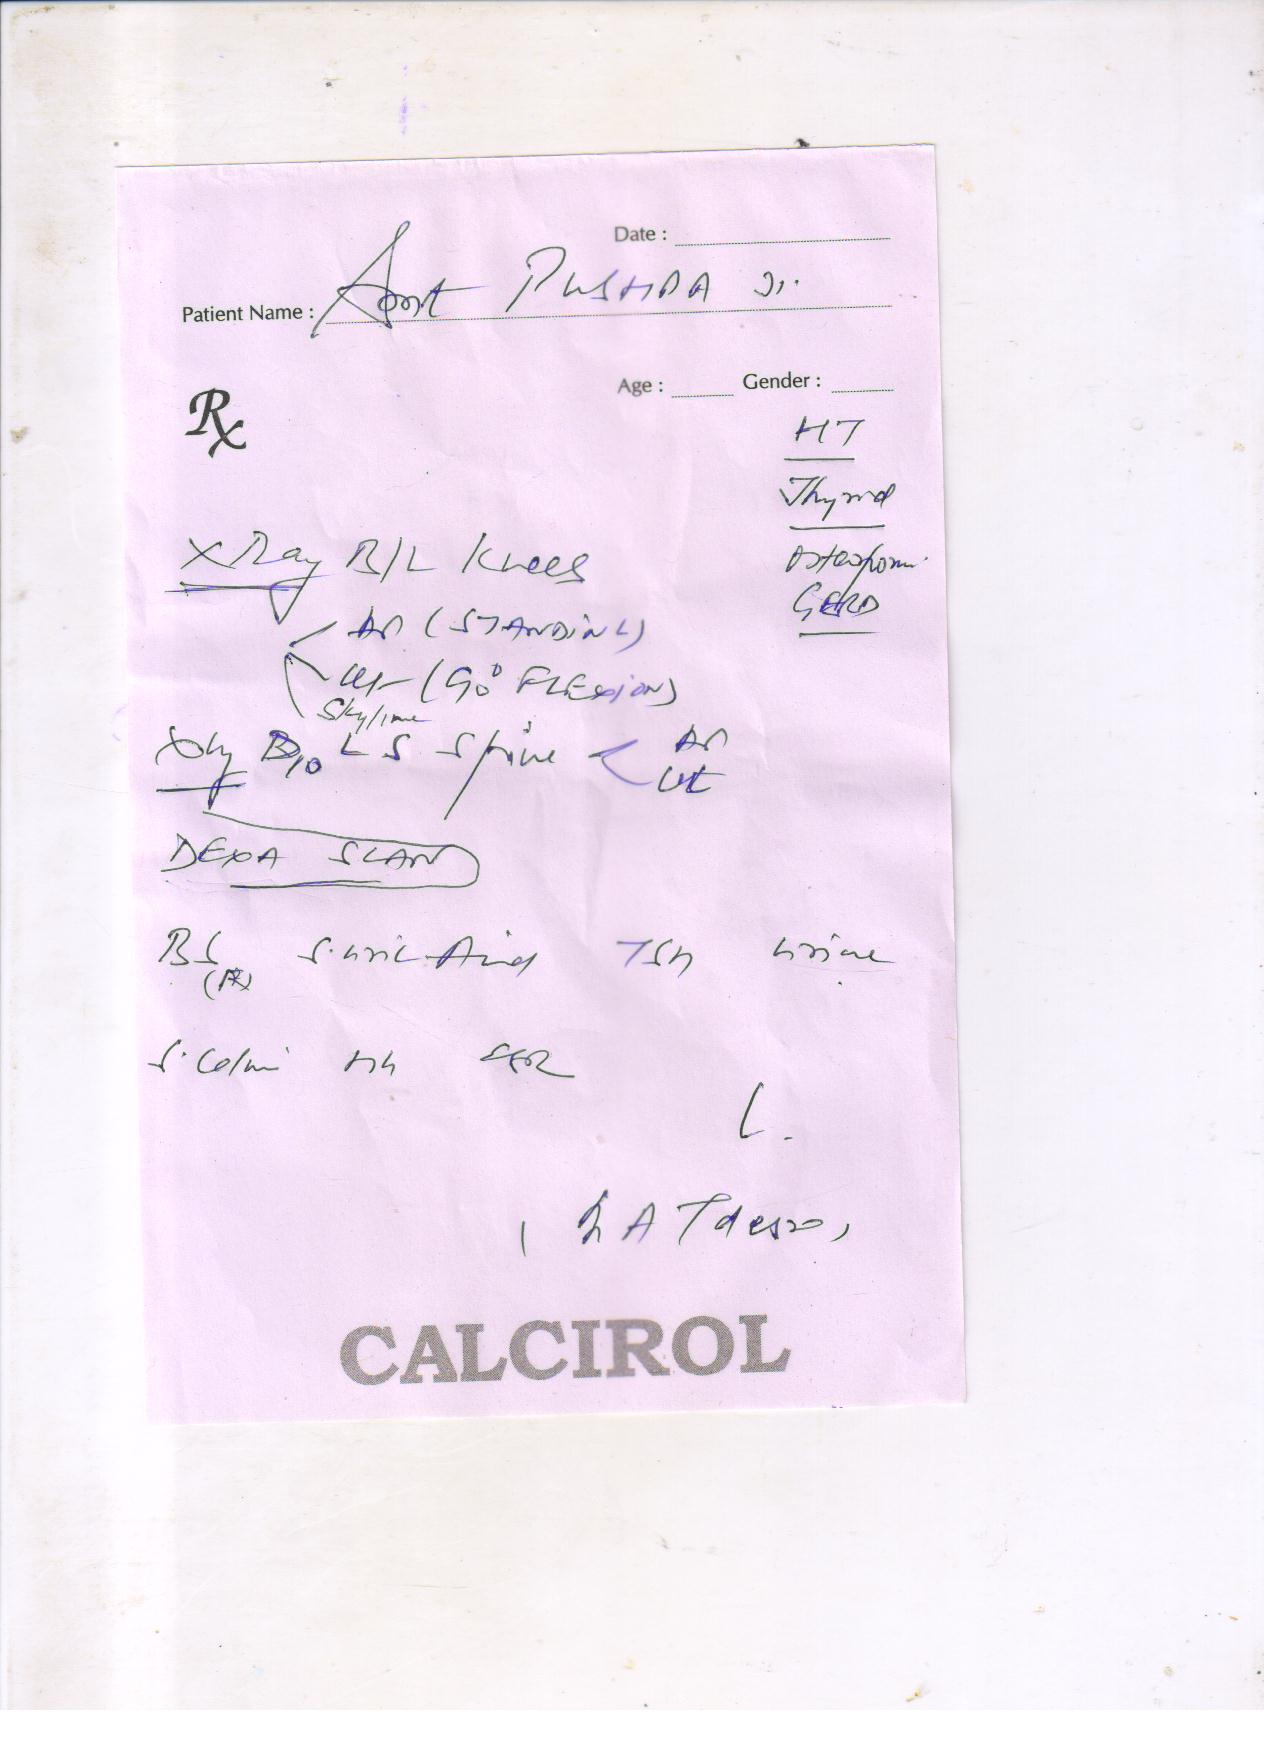 Date :
Patient Name : Smt PUSHPA Ji.
Age : Gender :
Rx
HT
Thyroid
GERD
X Ray B/L Knees
AP (STANDING)
(90° FLEXION)
Skyline
XRay LS Spine AP
Lat
DEXA SCAN
BS S. Uric Acid TSH Urine
S. Calci Hb ESR
CALCIROL